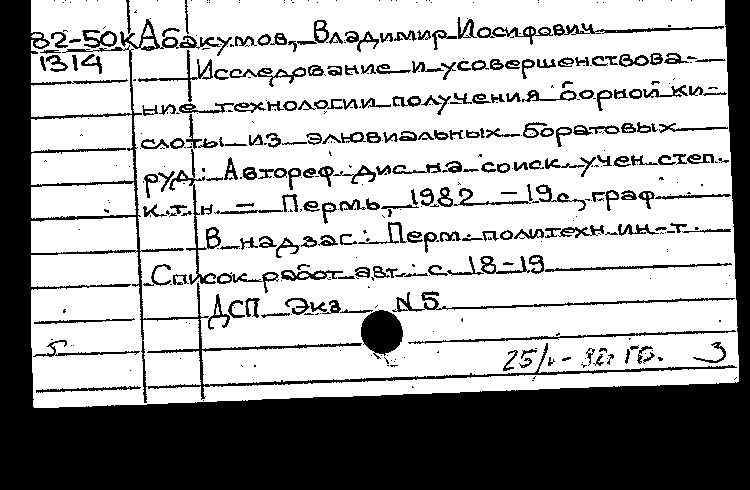 82-50К Абакумов, Владимир Иосифович
1314 Исследование и усовершенствова-
ние технологии получения борной ки-
слоты из элювиальных боратовых
руд: Автореф. дис. на соиск. учен. степ.
к.т.н. - Пермь, 1982 - 19 с., граф
В надзас: Перм. политехн. ин-т.
Список работ авт.: с. 18-19
ДСП Экз. N5.
5
25/ - 82г ГБ. 3